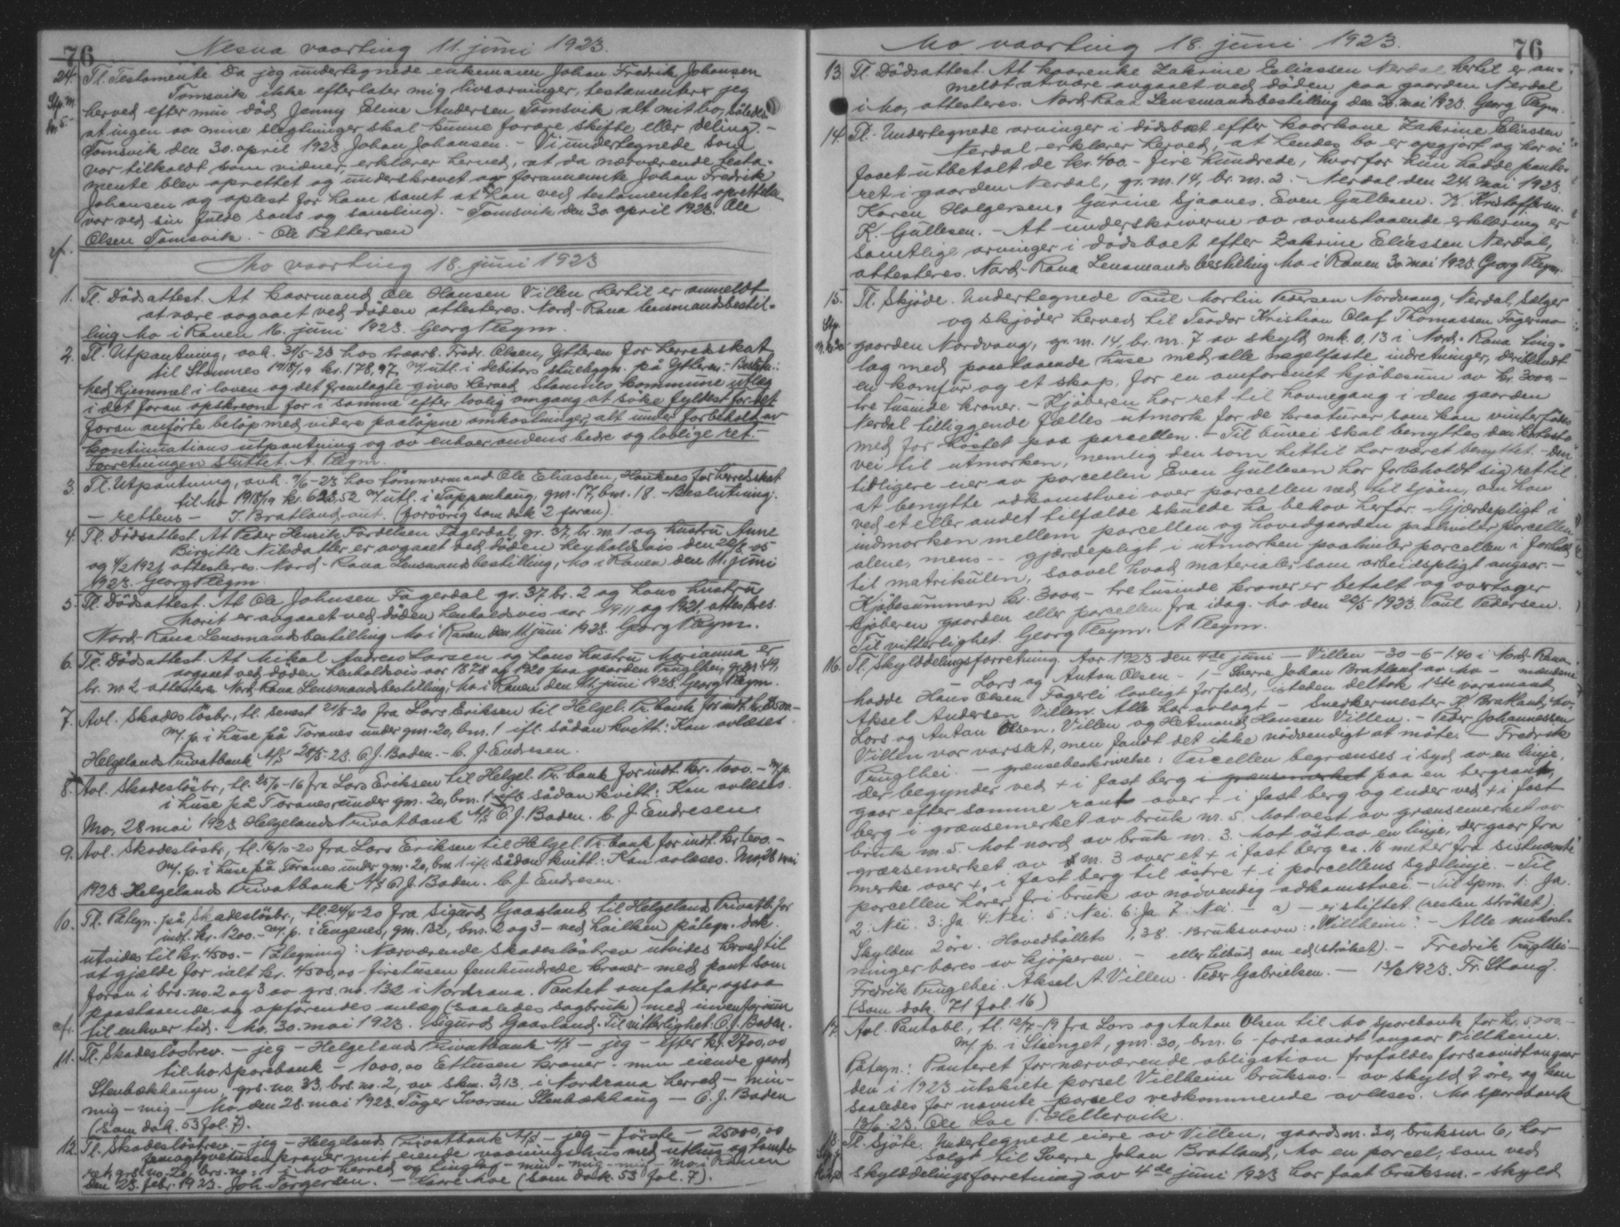 76
Nesna vaarting 11. juni 1923.
24. Tl. Testamente Da jeg undertegnede enkemann Johan Fredrik Johansen
Tomsvik ikke efterlater mig livsarvinger, testamenterer jeg
herved efter min död Jenny Eline Andersen Tomsvik alt mit bo, således
at ingen av mine slegtninger skal kunne forære skifte eller deling. -
Tomsvik den 30. april 1923 Johan Johansen. - Vi undertegnede som
var tilkaldt som vidner, erklærer herved, at da nærværende testa-
mente blev oprettet og underskrevet av forannevnte Johan Fredrik
Johansen og oplest for ham samt at han ved testamentets oprettelse
var ved sin fulde sans og samling. - Tomsvik den 30 april 1923. Ole
Olsen Tomsvik. - Ole Pettersen
Mo vaarting 18. juni 1923
1. Tl. Dödsattest. At kaarmand Ole Hansen Villen hertil er anmeldt
at være avgaaet ved döden attesteres. Nord-Rana lensmandsbestil-
ling Mo i Ranen 16. juni 1923. Georg Pleym.
2. Tl. Utpantning, avh. 31/5-23 hos traarb. Fredr. Olsen, Ytteren for herredskat
til Stamnes 1918/19 kr. 178,97, m/ utl. i debitors stuebygn. på Ytteren. - Beslutn.:
Med hjemmel i loven og det fremlagte gives herved Stamnes kommune utlæg
i det foran opskrevne for i samme efter lovlig omgang at söke fyldest for det
foran anförte belöp med videre paalöpne omkostninger, alt under forbehold av
kontinuations utpantning og av enhver andens bedre og lovlige ret.
Forretningen sluttet. A. Pleym.
3. Tl. Utpantning, avh. 7/6-23 hos tömmermand Ole Eliassen, Hauknes for herredskat
til Mo 1918/19 kr. 623,52 m/ utl. i Sappenhaug, gnr. 17, bnr. 18 - Beslutning:
- rettens - J. Bratland, aut. (forövrig som dok 2 foran).
4. Tl. Dödsattest. At Peder Henrik Fördelsen Fagerdal, gr. 37, br. nr. 1 og hustru Anne
Birgitte Nilsdatter er avgaaet ved döden henholdsvis den 22/8-05
og 4/2 1921 attesteres. Nord-Rana Lensmandsbestilling, Mo i Ranen den 11. juni
1923. Georg Pleym.
5. Tl. Dödsattest. At Ole Johnsen Fagerdal gr. 37. br. 2 og hans hustru
Marit er avgaaet ved döden henholdsvis aar 1911 og 1921 attesteres.
Nord-Rana Lensmandsbestilling Mo i Ranen den 11. juni 1923. Georg Pleym.
6. Tl. Dödsattest. At Mikal Andreas Larsen og hans hustru Marianna er
avgaaet ved döden henholdsvis aar 1878 og 1920 paa gaarden Ruglhei, gr.
br. nr. 2 attesteres Nord Rana Lensmandsbestilling, Mo i Ranen den 11 juni 1923. Georg Pleym.
7. Avl. Skadeslösbr., tl. senest 21/5-20 fra Lars Eriksen til Helgel. Pr. bank for indt.
m/ p. i huse på Toranes under gnr. 20, bnr. 1 ifl. sådan kvitt: Kan avlæses
Helgelands Privatbank A/S 28/5-23. C. J. Baden. - C. J. Endresen.
8. Avl. Skadeslösbr., tl. fra Lars Eriksen til Helgel. Pr. bank for indt. kr. 1000. - m/ p.
i huse på Toranes, under gnr. 20, bnr. 1 ifl. sådan kvitt: Kan avlæses.
Mo, 28 mai 1923. Helgelands Privatbank A/S C. J. Baden. C J Endresen
9. Avl. Skadeslösbr., tl. 16/10-20 fra Lars Eriksen til Helgel. Pr. bank for indt.
m/ p. i huse på Toranes under gnr. 20, bnr. 1 ifl. sådan kvitt: Kan avlæses. Mo, 28 mai
1923 Helgelands Privatbank A/S C. J. Baden. C. J. Endresen.
10. Tl. Pategn. på Skadeslösbr., tl. 24/4-20 fra Sigurd Gaasland til Helgelands Privatb. for
indt. kr. 1200. - m/ p. i Engenes, gnr. 132, bnr. 2 og 3 - ved hvilken pålegn. dok.
utvides til kr. 4500. - Påtegning: Nærværende skadeslösbrev utvides herved til
at gjælde for ialt kr. 4500,00 - firetusen femhundrede kroner med pant som
foran i brs. no. 2 og 3 av grs. no. 132 i Nordrana. Pantet omfatter ogsaa
paastaaende og opförendes anlæg (saaledes sagbruk) med inventarium
til enhver tid. Mo, 30. mai 1923. Sigurd Gaasland. Til vitterlighet: C. J. Baden.
11. Tl. Skadeslösbrev. - jeg - Helgelands Privatbank A/S - jeg - efter
til Mo Sparebank - 1000,00 Ettusen kroner - min eiende gaard
Stenbækhaugen, grs. no. 33, brs. no. 2, av skm. 3,13 i Nordrana herred - min-
mig - mig - Mo den 28. mai 1923. Tåger Ivarsen Stenbækhaug - C. J. Baden
(som dok. 53 fol. 7).
12. Tl. Skadeslösbrev. - jeg - Helgelands Privatbank A/S - jeg - förste - 25000,00
femogtyvetusen kroner mit eiende vaaningshus med utlling og tomte-
ret, grs. no. 20, brs. no. 1 i Mo herred og tinglag - min - mig - mig - Mo i Ranen
den 23. febr. 1923. Joh. Torgersen. - (som dok. 53 fol. 7).
76
Mo vaarting 18. juni 1923.
13. Tl. Dödsattest. At kaarenke Zakrine Eeliassen Nerdal hertil er an-
meldt at være avgaaet ved döden paa gaarden Nerdal
i Mo, attesteres. Nord Rana Lensmandsbestilling den 30. mai 1923. Georg Pleym.
14. Tl. Undertegnede arvinger i dödsboet efter kaarkone Zakrine Eliassen
Nerdal erklærer herved, at hendes bo er opgjort og har vi
faaet utbetalt de kr. 400 - fire hundrede, hvorfor hun hadde pante-
ret i gaarden Nerdal, gr. nr. 14, br. nr. 2. - Nerdal den 24. mai 1923.
Karen Holgersen. Gurine Sjaanes. Even Gullesen. K. Kristoffersen.
K. Gullesen. - At underskriverne av ovenstaaende erklæring er
samtlige arvinger i dödsboet efter Zakrine Eliassen Nerdal,
attesteres. Nord-Rana Lensmandsbestilling Mo i Ranen 30 mai 1923. Georg Pleym.
15. Tl. Skjöde. Undertegnede Paul Martin Pedersen Nordvang, Nerdal, sælger
og skjöder herved til Teodor Kristian Olaf Thomassen Fagermo
gaarden Nordvang, gr. nr. 14, br. nr. 7 av skyld mk. 0,13 i Nord-Rana ting-
lag med paastaaende huse med alle nagelfaste indretninger, deriblandt
en komfur og et skap, for en omforenet kjöbesum av kr. 3000 -
tre tusinde kroner. - Kjöberen har ret til havnegang i den gaarden
Nerdal tilliggende fælles utmark for de kreaturer som kan vinterfödes
med for höstet paa parcellen. - Til buvei skal benyttes den korteste
vei til utmarken, nemlig den som hittil har været benyttet. - Den
tidligere eier av parcellen Even Gullesen har forbeholdt sig ret til
at benytte adkomstvei over parcellen ned til sjöen, om han
ved et eller andet tilfælde skulde ha behov herfor. - Gjærdepligt i
indmarken mellem parcellen og hovedgaarden paahviler parcellen
alene, mens - gjærdepligt i utmarken paahviler parcellen i forhold
til matrikulen, saavel hvad materialer som arbeidspligt angaar. -
Kjöbesummen kr. 3000 - tre tusinde kroner er betalt og overtager
kjöberen gaarden eller parcellen fra idag. Mo den 22/5-1923 Paul Pedersen.
Til vitterlighet: Georg Pleym. A Pleym.
16. Tl. Skylddelingsforretning. Aar 1923 den 4de juni - Villen - 30-6-1.40 i Nord-Rana
- Lars og Anton Olsen - 1 - Sverre Johan Bratland av Mo - mændene
hadde Hans Olsen Fagerli lovlig forfald, isteden deltok 1ste varamand
Aksel Andersen Villen. Alle har avlagt - Snekkermester Bratland,
Lars og Anton Olsen, Villen og Hermand Hansen Villen. - Peder Johannessen
Villen var varslet, men fandt det ikke nödvendig at möte. - Fredrik
Ruglhei. - grænsebeskrivelse: Parcellen begrænses i syd av en linje,
der begynder ved + i fast berg i grænsemerket paa en bergrant,
gaar efter samme rant over + i fast berg og ender ved + i fast
berg i grænsemerket av bruk nr. 5. Mot vest av grænsemerket av
bruk nr. 5. Mot nord av bruk nr. 3. Mot öst av en linje, der gaar fra
grænsemerket av nr. 3 over et + i fast berg ca. 16 meter fra sistnævnte
merke over + i fast berg til östre + i parcellens sydlinje. - Til
parcellen hörer fri bruk av nödvendig adkomstvei. - Til spm. 1: Ja.
2: Nei. 3: Ja 4: Nei. 5: Nei. 6: Ja 7: Nei. - a) - er stiftet (resten ströket)
Skylden 2 öre. Hovedbölets 1,38. Bruksnavn: "Villheim". - Alle omkost-
ninger bæres av kjöperen. - eller tilbud om ed (ströket). - Fredrik Ruglhei -
Fredrik Ruglhei. Aksel A. Villen. Peder Gabrielsen. - 13/6 1923. Fr. Stang.
(Som dok. 71 fol. 16)
17. Avl. Pantobl., tl. 12/7-19 fra Lars og Anton Olsen til Mo Sparebank for kr.
m/ p. i Stenget, gnr. 30, bnr. 6 - forsaavidt angaar Villheim.
Pategn: Panteret for nærværende obligation frafaldes forsaavidt angaar
den i 1923 utskilte parsel Villheim bruksno. - av skyld 2 öre, og kan
saaledes for nævnte parsels vedkommende avlæses. Mo Sparebank
13/6-23. Ole Loe P. Hellervik.
18. Tl. Sjöte. Undertegnede eiere av Villen, gaardsnr. 30, bruksnr. 6, har
solgt til Sverre Johan Bratland, Mo en parcel, som ved
skylddelingsforretning av 4de juni 1923 har faat bruksnr. - skyld